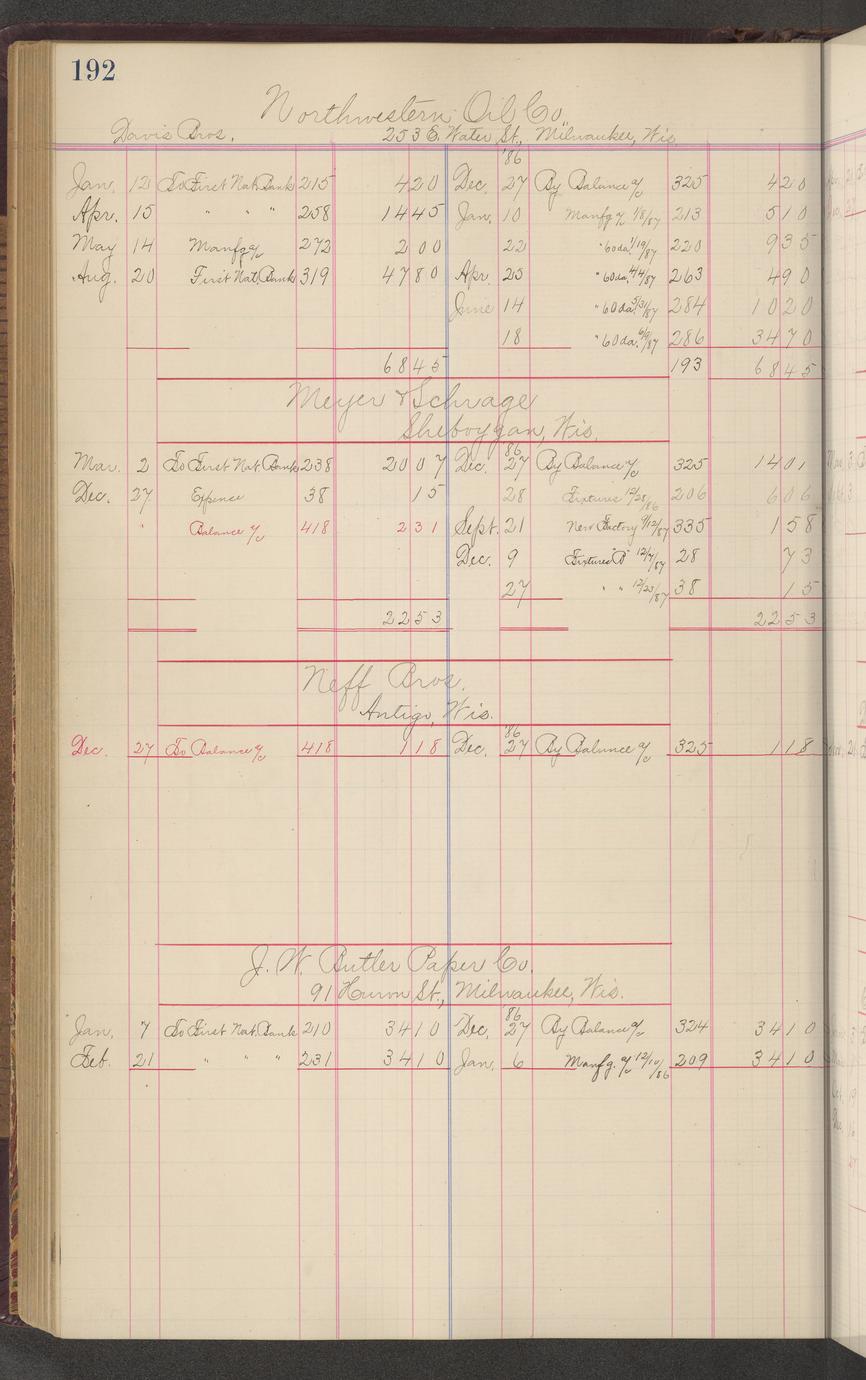 192
Northwestern Oil Co.
Davis Bros. 253 E. Water St., Milwaukee, Wis.
'86
Jan. 12 To First Nat. Bank 215 420 Dec. 27 By Balance a/c 325 420
Apr. 15 " " " 258 1445 Jan. 10 Manfg a/c 1/8/87 213 510
May 14 Manfg a/c 272 200 22 " 60 da. 1/19/87 220 935
Aug. 20 First Nat. Bank 319 4780 Apr. 25 " 60 da. 4/4/87 263 490
June 14 " 60 da. 5/31/87 284 1020
18 " 60 da. 6/9/87 286 3470
6845 193 6845
Meyer & Schrage
Sheboygan, Wis.
86
Mar. 2 To First Nat. Bank 238 2007 Dec. 27 By Balance a/c 325 1401
Dec. 27 Expence 38 15 28 Fixtures 12/28/86 206 606
" Balance a/c 418 231 Sept. 21 New Factory 9/12/87 335 158
Dec. 9 Fixtures "B" 12/7/87 28 73
27 " " 12/23/87 38 15
2253 2253
Neff Bros.
Antigo, Wis.
'86
Dec. 27 To Balance a/c 418 118 Dec. 27 By Balance a/c 325 118
J. W. Butler Paper Co.
91 Huron St., Milwaukee, Wis.
86
Jan. 7 To First Nat. Bank 210 3410 Dec. 27 By Balance a/c 324 3410
Feb. 21 " " " 231 3410 Jan. 6 Manfg. a/c 12/10/86 209 3410